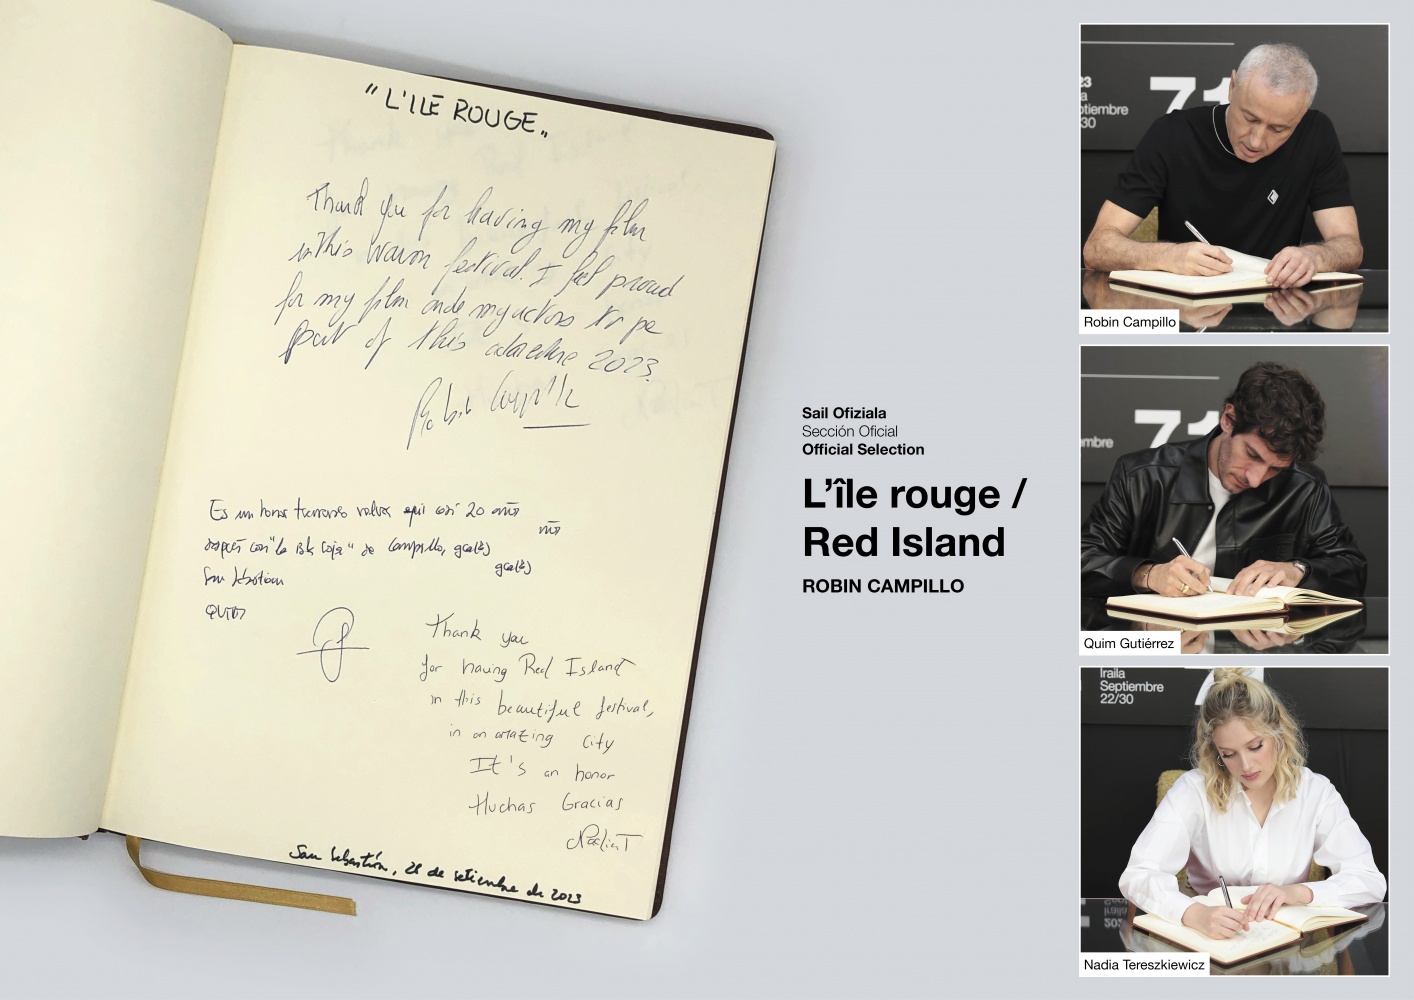 "L'ILE ROUGE"
Thank you for having my film
in this warm festival. I feel proud
for my film and my actors to be
part of this 2023.
Robin Campillo
Es un honor volver aquí casi 20 años
después con "La" de Campillo,
San Sebastián
QUIM
Thank you
for having Red Island
in this beautiful festival,
in an amazing city
It's an honor
Muchas Gracias
Nadia T
San Sebastián, 28 de setiembre de 2023
Sail Ofiziala
Sección Oficial
Official Selection
L'île rouge /
Red Island
ROBIN CAMPILLO
23
a
ptiembre
/30
71
Robin Campillo
71
embre
Quim Gutiérrez
Iraila
Septiembre
22/30
Nadia Tereszkiewicz